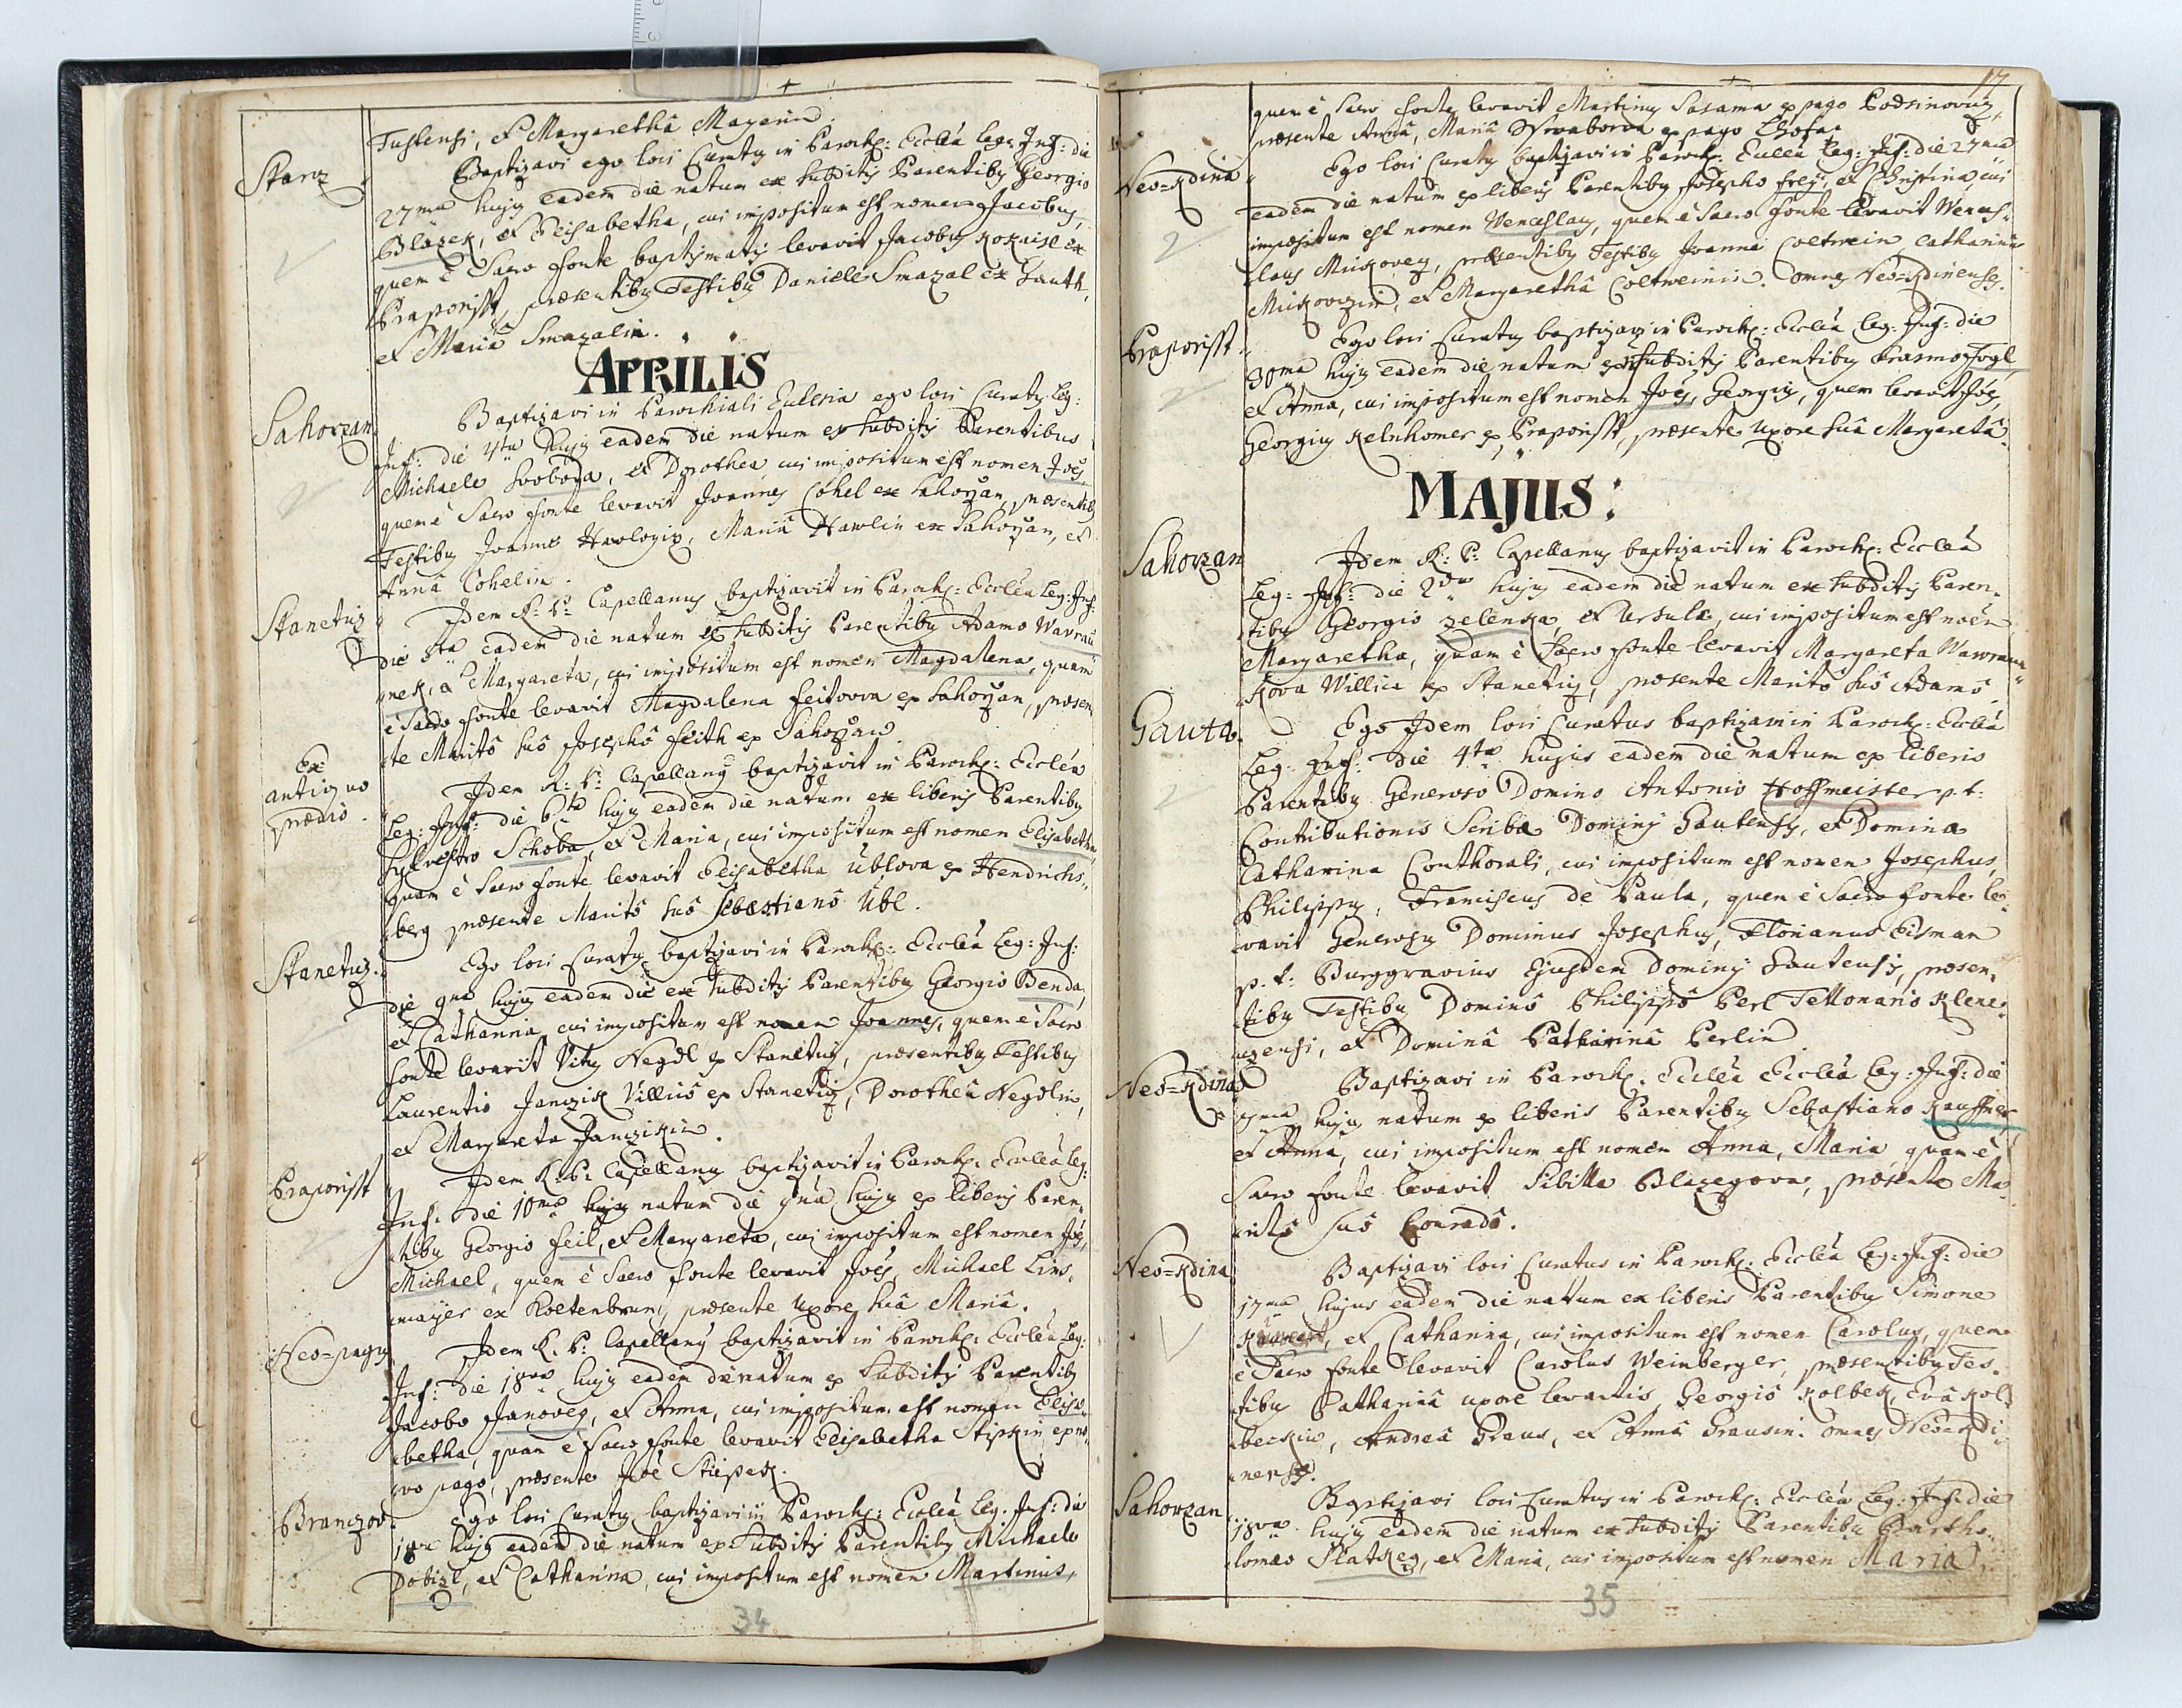 Tustensi, et Margaretha Mayerin.
Stanz
Baptizavi ego loci Curatus in Paroch: Ecclea Leg: Inf: die
27ma hujus eadem die natum ex subditis Parentibus Georgio
Blazek, et Elisabetha, cui impositum est nomen Jacobus,
quem è Sacro fonte baptismatis levavit Jacobus Kokaisl ex
Praporisst, praesentibus Testibus Daniele Smazal ex Gauth,
et Mariâ Smazalin.
APRILIS
Sahorzan
Baptizavi in Parochiali Ecclesia ego loci Curatus Leg:
Inf: die 4ta hujus eadem die natum ex subditis Parentibus
Michaele Svoboda, et Dorothea, cui impositum est nomen Joes,
quem è Sacro fonte levavit Joannes Cohel ex Sahorzan, praesentibus
Testibus Joanne Hawlogix, Mariâ Hawlin ex Sahorzan, et
Annâ Cohelin.
Stanetitz
Idem R: P: Capellanus baptizavit in Paroch: Ecclea Leg: Inf:
die 5ta eadem die natum ex subditis Parentibus Adamo Wavrau
nek, et Margareta, cui impositum est nomen Magdalena, quam
è Sacro fonte levavit Magdalena Feitova ex Sahorzan, praesen
te Maritô suô Josephô Feith ex Sahorzan.
Ex
antiquo
praedio.
Idem R: P: Capellanus baptizavit in Paroch: Ecclea
Leg: Inf: die 6ta hujus eadem die natum ex liberis Parentibus
Sylvestro Schoba, et Maria, cui impositum est nomen Elisabetha,
quam è Sacro fonte levavit Elisabetha Ublova ex Hendrichs-
berg praesente Maritô suô Sebastianô Übl.
Stanetitz
Ego loci Curatus baptizavi in Paroch: Ecclea Leg: Inf:
die 9na hujus eadem die ex subditis Parentibus Georgio Benda,
et Catharina, cui impositum est nomen Joannes, quem è Sacro
fonte levavit Vitus Negdl ex Stanetitz, praesentibus Testibus
Laurentio Janczik Villicô ex Stanetitz, Dorotheâ Negdlin,
et Margareta Janczikin.
Praporisst
Idem R: P: Capellanus baptizavit in Paroch: Ecclea Leg:
Inf: die 10ma hujus natum die 9na hujus ex liberis Paren-
tibus Georgio Feil, et Margareta, cui impositum est nomen Joes,
Michael, quem è Sacro fonte levavit Joes, Michael Lins-
mayer ex Koetenbrun, praesente uxore suâ Mariâ.
Neo=pagus
Idem R: P: Capellanus baptizavit in Paroch: Ecclea Leg:
Inf: die 18va hujus eadem die natum ex Subditis Parentibus
Jacobo Janoveg, et Anna, cui impositum est nomen Elisa-
betha, quam è Sacro fonte levavit Elisabetha Stipkin ex no-
vo pago, praesente Joe Stiepek.
Branczov
Ego loci Curatus baptizavi in Paroch: Ecclea Leg: Inf: die
18va hujus eadem die natum ex Subditis Parentibus Michaele
Dobisl, et Catharina, cui impositum est nomen Martinus,
34
17
quem è Sacro fonte levavit Martinus Sasama ex pago Podrinovitz,
praesente Annâ, Mariâ ex pago Chofar
Neo=Kdina
Ego loci Curatus baptizavi in Paroch: Ecclea Leg: Inf: die 27ma
eadem die natum ex liberis Parentibus Josepho Frey, et Christina, cui
impositum est nomen Wenceslaus, quem è Sacro fonte levavit Wences-
laus Mirkoveg, praesentibus Testibus Joanne Coltwein, Catharinâ
Mirkovczin, et Margarethâ Coltweinin. omnes Neo=Kdinenses.
Praporisst
Ego loci Curatus baptizavi in Paroch: Ecclea Leg: Inf: die
30ma hujus eadem die natum ex subditis Parentibus Erasmo Fogl,
et Anna, cui impositum est nomen Joes, Georgius, quem levavit Joes,
Georgius Kelnhomer ex Praporisst, praesente uxore suâ Margaretâ.
MAJUS:
Sahorzan
Idem R: P: Capellanus baptizavit in Paroch: Ecclea
Leg: Inf: die 2da hujus eadem die natum ex subditis Paren-
tibus Georgio Zelenka et Ursula, cui impositum est noen
Margaretha, quam è Sacro fonte levavit Margareta Wawraun-
kova Willica ex Stanetitz, praesente Maritô suô Adamô
Gauta.
Ego Idem loci Curatus baptizavi in Paroch: Ecclea
Leg: Inf: die 4ta hujus eadem die natum ex liberis
Parentibus Generoso Domino Antonio Hoffmeister p. t:
Contributionis Scriba Dominij Gautensis, et Domina
Catharina Conthorali, cui impositum est nomen Josephus,
Philippus, Franciscus de Paula, quem è Sacro fonte le-
vavit Generosus Dominus Josephus, Florianus Pisman
p. t: Burggravius Ejusdem Dominij Gautensis, praesen-
tibus Testibus Dominô Philippô Perl Tellonariô Klene-
czensi, et Dominâ Catharinâ Perlin
Neo=Kdina
Baptizavi in Paroch. Ecclea Ecclea Leg: Inf: die
7ma hujus natum ex liberis Parentibus Sebastiano Kauffner,
et Anna, cui impositum est nomen Anna, Maria, quam è
Sacro fonte levavit Sibilla Blazegova, praesente Ma-
ritô suô Conradô.
Neo=Kdina
Baptizavi loci Curatus in Paroch: Ecclea Leg: Inf: die
17ma hujus eadem die natum ex liberis Parentibus Simone
et Catharina, cui impositum est nomen Carolus, quem
è Sacro fonte levavit Carolus Weinberger, praesentibus Tes-
tibus Catharinâ uxore levantis, Georgiô Kolbek, Evâ Kol-
beckin, Andreâ Graus, et Annâ Grausin. omnes Neo=Kdi-
nenses.
Sahorzan
Baptizavi loci Curatus in Paroch: Ecclea Leg: Inf: die
18va hujus eadem die natum ex subditis Parentibus Bartho-
lomaeo Slatkeg, et Maria, cui impositum est nomen Maria,
35